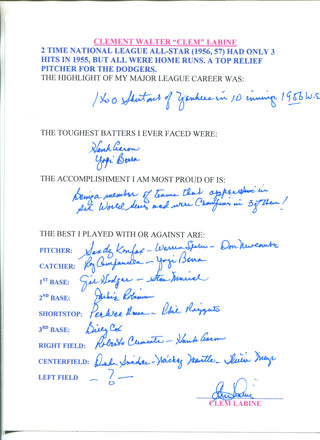 CLEMENT WALTER "CLEM" LABINE
2 TIME NATIONAL LEAGUE ALL-STAR (1956, 57) HAD ONLY 3
HITS IN 1955, BUT ALL WERE HOME RUNS. A TOP RELIEF
PITCHER FOR THE DODGERS.
THE HIGHLIGHT OF MY MAJOR LEAGUE CAREER WAS:
1 to 0 Shutout of Yankees in 10 innings 1956 W.S.
THE TOUGHEST BATTERS I EVER FACED WERE:
Hank Aaron
Yogi Berra
THE ACCOMPLISHMENT I AM MOST PROUD OF IS:
Being a member of teams that in
World Series and were Champions in 3 of them!
THE BEST I PLAYED WITH OR AGAINST ARE:
PITCHER: Sandy Koufax - Warren Spahn - Don Newcombe
CATCHER: Roy Campanella - Yogi Berra
1ST BASE: Gil Hodges - Stan Musial
2ND BASE: Jackie Robinson
SHORTSTOP: Pee Wee Reese - Phil Rizzuto
3RD BASE: Billy Cox
RIGHT FIELD: Roberto Clemente - Hank Aaron
CENTERFIELD: Duke Snider - Mickey Mantle - Willie Mays
LEFT FIELD - ? -
Clem Labine
CLEM LABINE